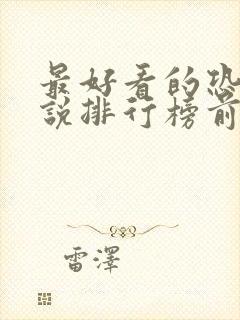 最好看的恐
說排行榜前
雷澤